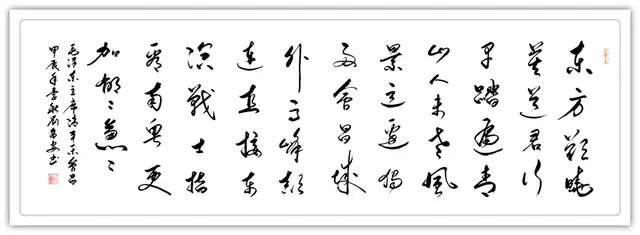 东方欲曉
莫道君行
早踏遍青
山人未老風
景这邊独
好會昌城
外高峰颠
连直接东
溟戰士指
看南粤更
加郁〻葱〻
毛泽东主席清平乐會昌
甲辰年季秋刘书